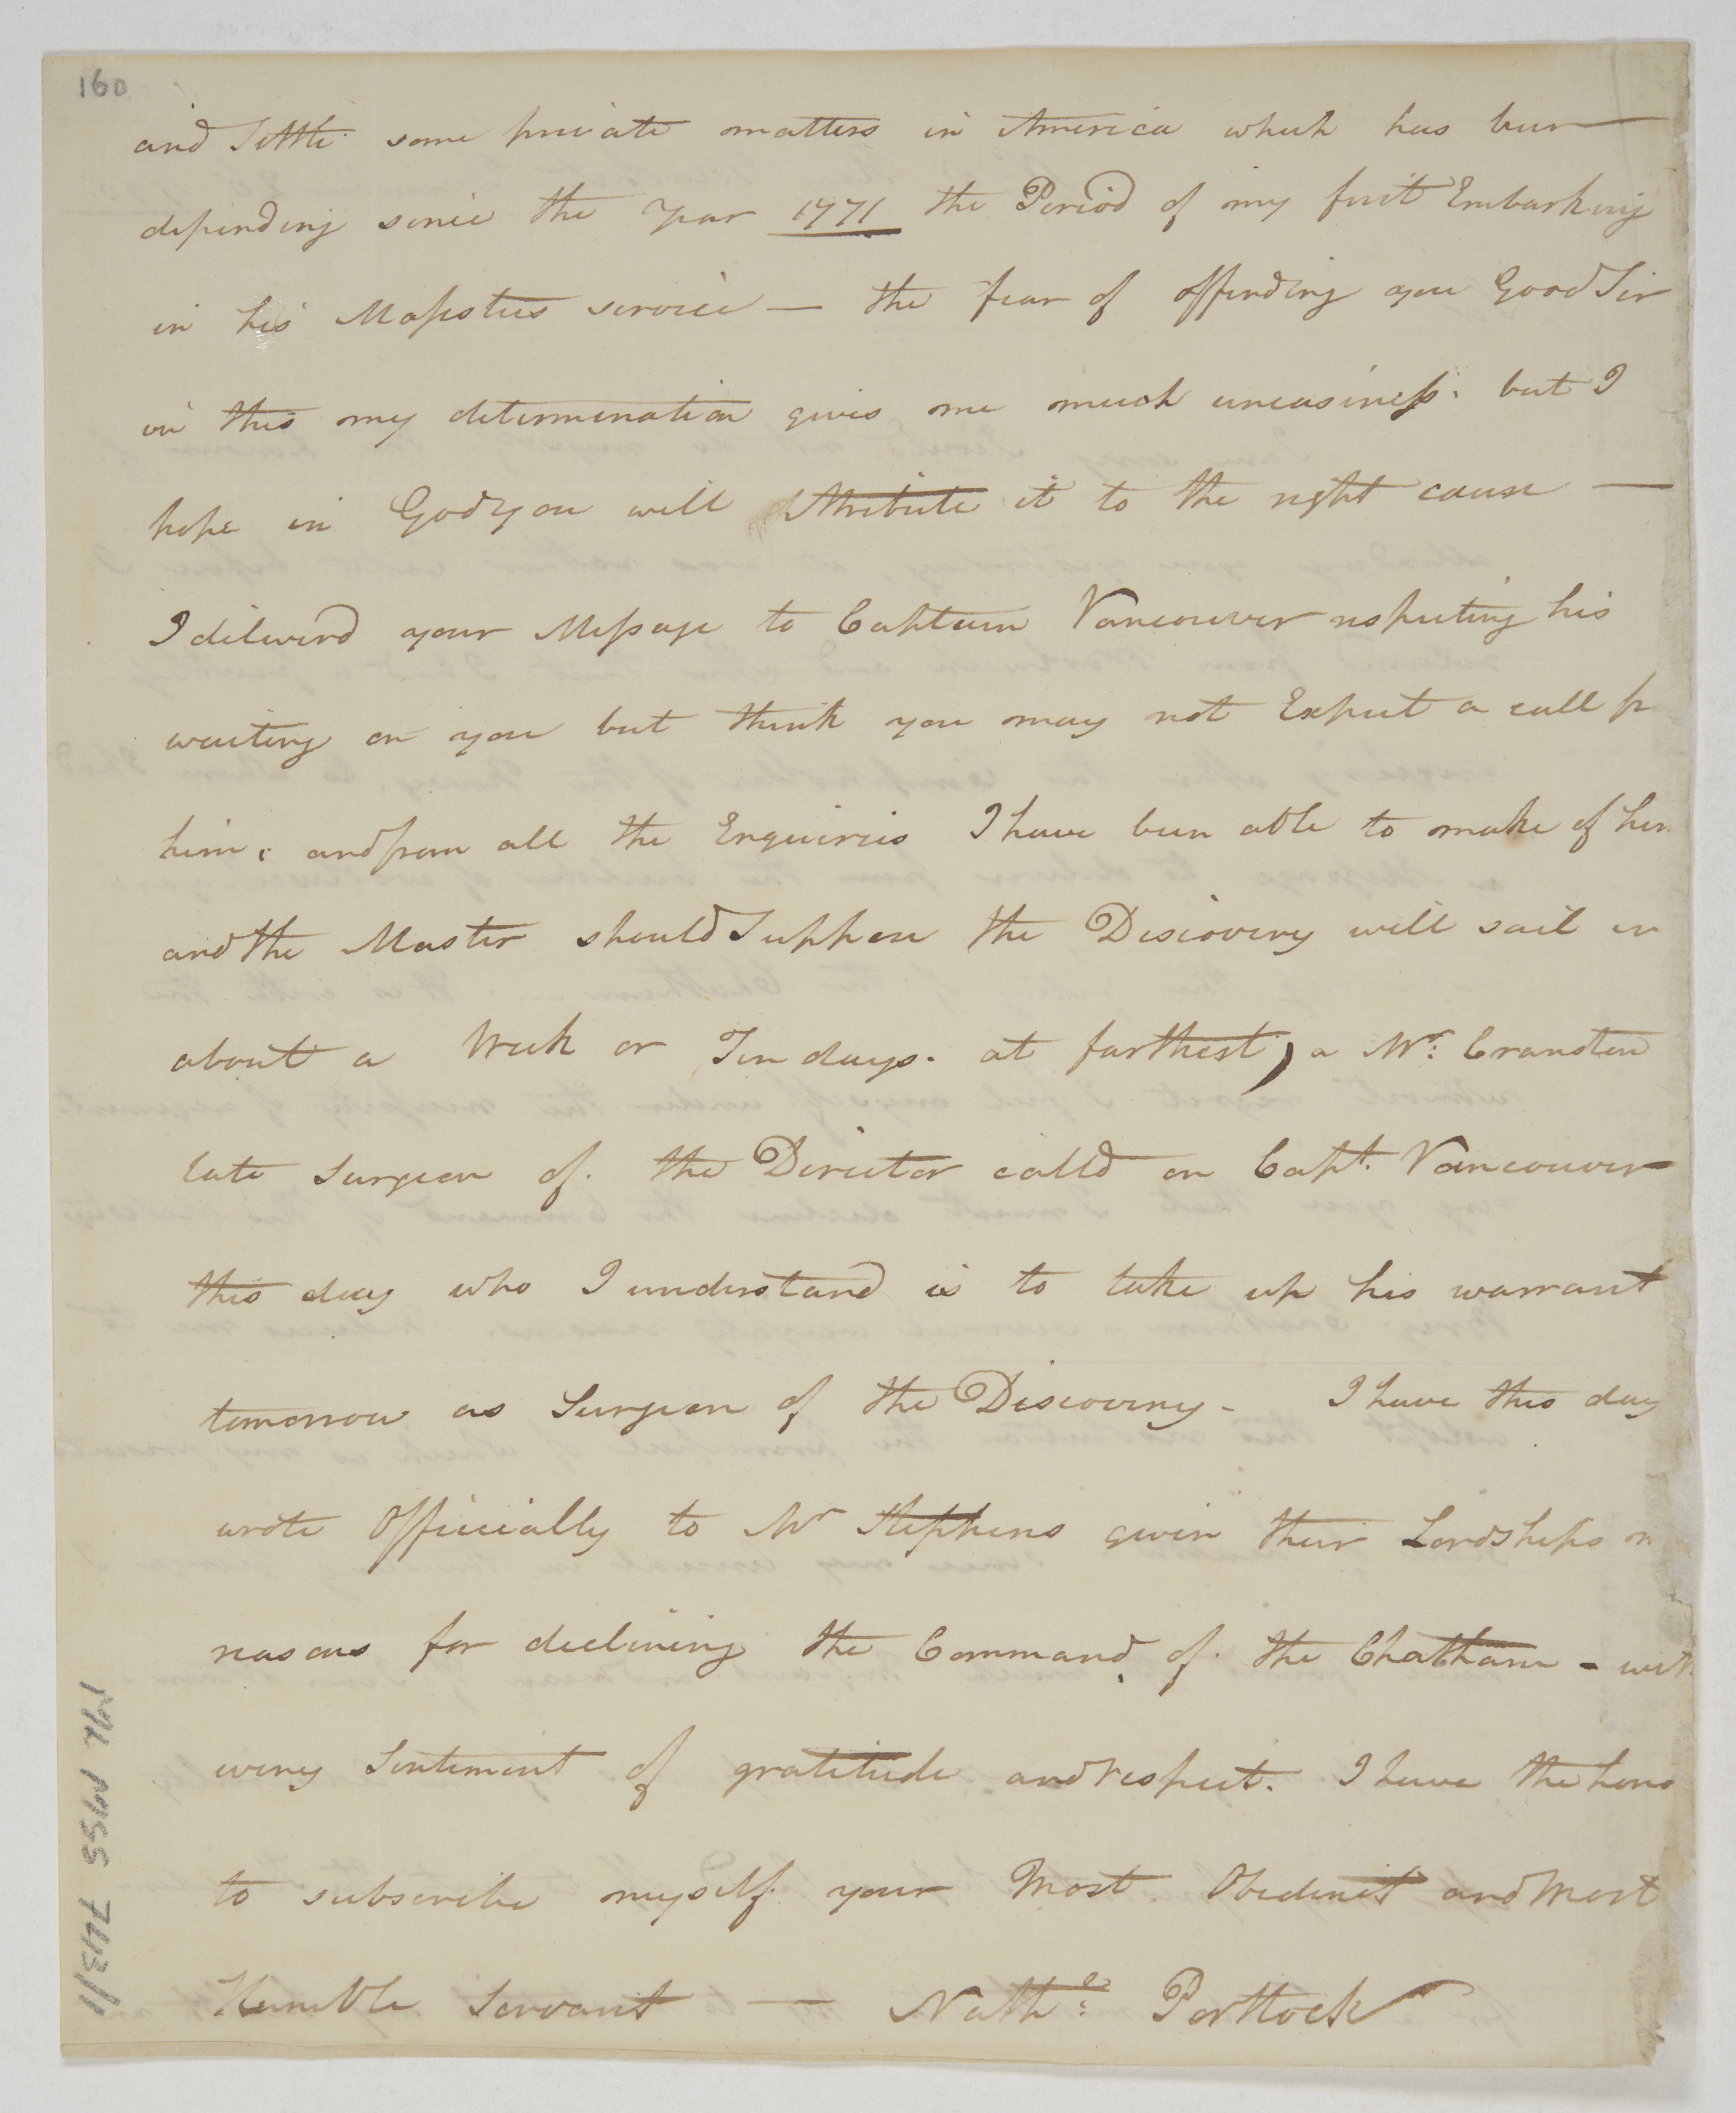 160
and Settle some private matters in America which has been —
depending since the Year 1771 the Period of my first Embarking
in his Majesties service — the fear of offending you Good Sir
in this my determination gives me much uneasiness. but I
hope in God you will Attribute it to the right cause —
I deliverd your Message to Captain Vancouver respecting his
waiting on you but think you may not Expect a call fr
him. and from all the Enquiries I have been able to make of him
and the Master should Suppose the Discovery will sail in
about a Week or Ten days. at farthest, a Mr: Cranston
late Surgeon of. the Director calld on Capt. Vancouver
this day who I understand is to take up his warrant
tomorrow as Surgeon of the Discovery - I have this day
wrote Officially to Mr Stephens givin their Lordships m
reasons for declining the Command of. the Chatham - with
every Sentiment of gratitude and respect. I have the hono
to subscribe myself your Most Obedient and Most
Humble Servant — Nathl: Portlock
ML MSS 7413/1